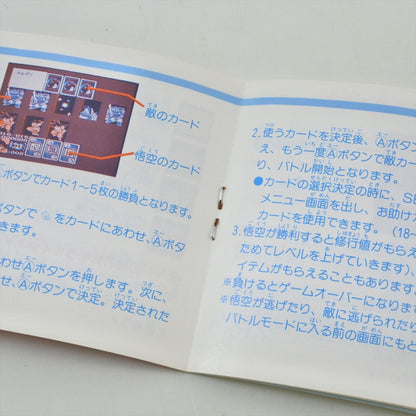 敵のカード
悟空のカード
ボタンでカード1〜5枚の勝負となります。
ボタンで をカードにあわせ、Ⓐボタ
きます。
わせⒶボタンを押します。次に、
せ、Ⓐボタンで決定。決定された
2.使うカードを決定後、Ⓐボタン
え、もう一度Ⓐボタンで敵カー
り、バトル開始となります。
●カードの選択決定の時に、SE
メニュー画面を出し、お助け
カードを使用できます。(18〜
3.悟空が勝利すると修行値がもらえ
ためてレベルを上げていきます)
アイテムがもらえることもあります
※負けるとゲームオーバーになりま
※悟空が逃げたり、敵に逃げられた
バトルモードに入る前の画面にもと